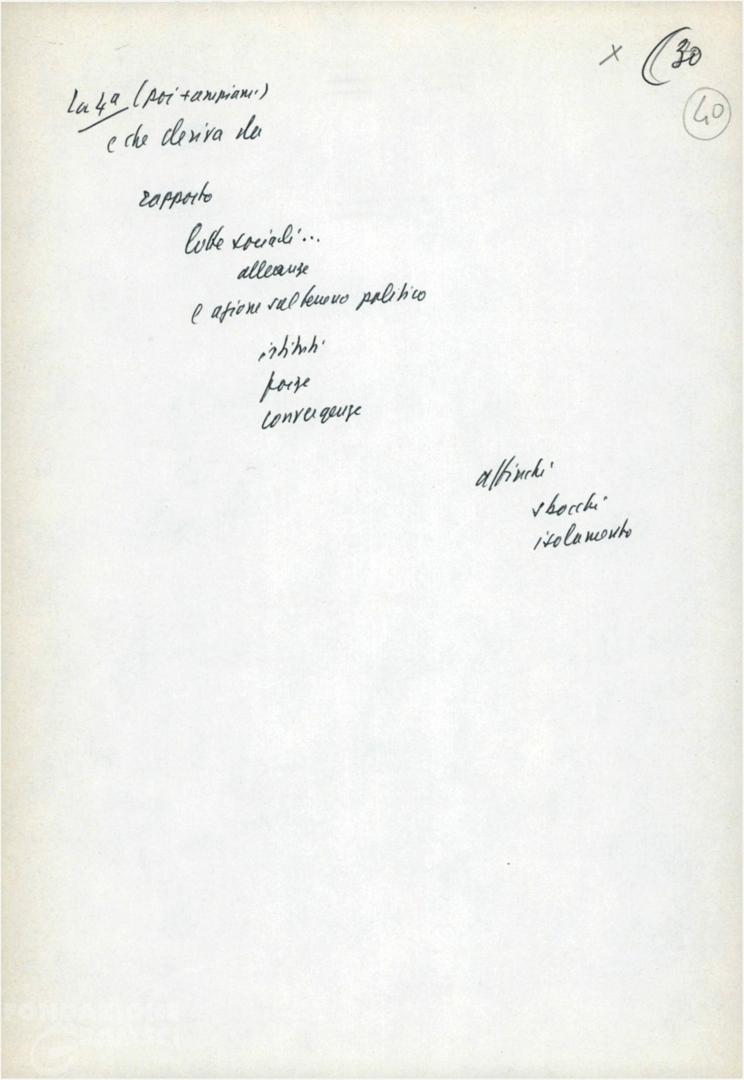 x (30
40
La 4ª (poi + ampiam.)
e che deriva da
rapporto
lotte sociali...
alleanze
e azione sul terreno politico
istituti
forze
convergenze
affinchè
sbocchi
isolamento
FONDAZIONE
GRAMSCI